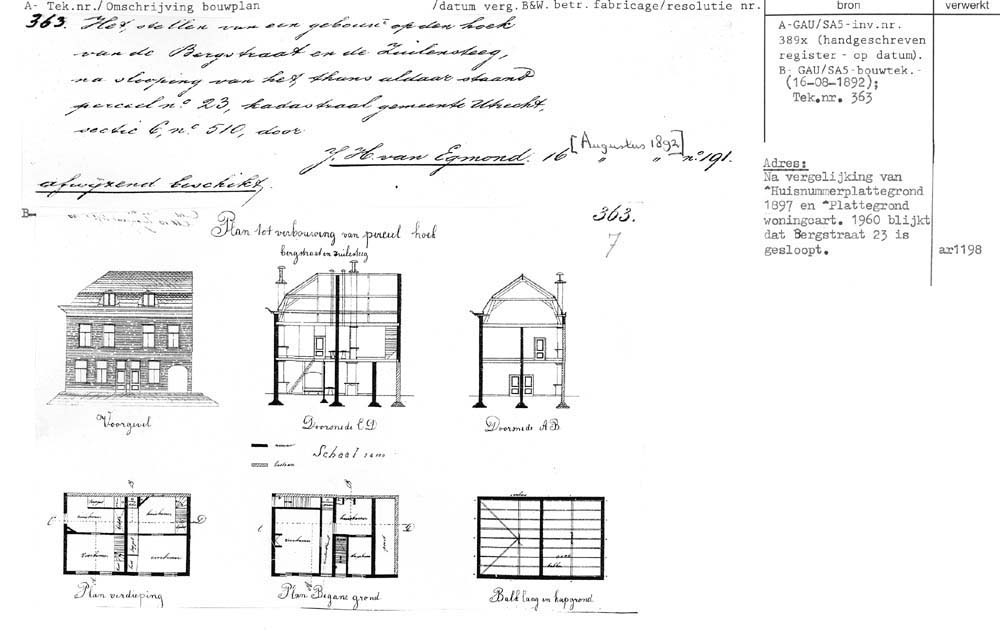 A- Tek.nr./Omschrijving bouwplan /datum verg. B&W. betr. fabricage/resolutie nr. bron verwerkt
363. Het stellen van een gebouw op den hoek
van de Bergstraat en de Zuilensteeg,
na slooping van het, thans aldaar staand
perceel no. 23, kadastraal gemeente Utrecht,
sectie C, no. 510, door
J. H. van Egmond. 16 [Augustus 1892] " " no. 191.
afwijzend beschikt.
A-GAU/SA5-inv.nr.
389x (handgeschreven
register - op datum).
B- GAU/SA5-bouwtek.-
(16-08-1892);
Tek.nr. 363
Adres:
Na vergelijking van
^Huisnummerplattegrond
1897 en ^Plattegrond
woningcart. 1960 blijkt
dat Bergstraat 23 is
gesloopt.
ar1198
B-
363.
7
Plan tot verbouwing van perceel hoek
bergstraat en zuilesteeg
Voorgevel
Doorsnede C D
Doorsnede A B
nieuw
bestaan
Schaal
B
C
D
voorkamer
Plan verdieping
B
C
D
voorkamer
Plan Begane grond
Balklaag en kapgrond